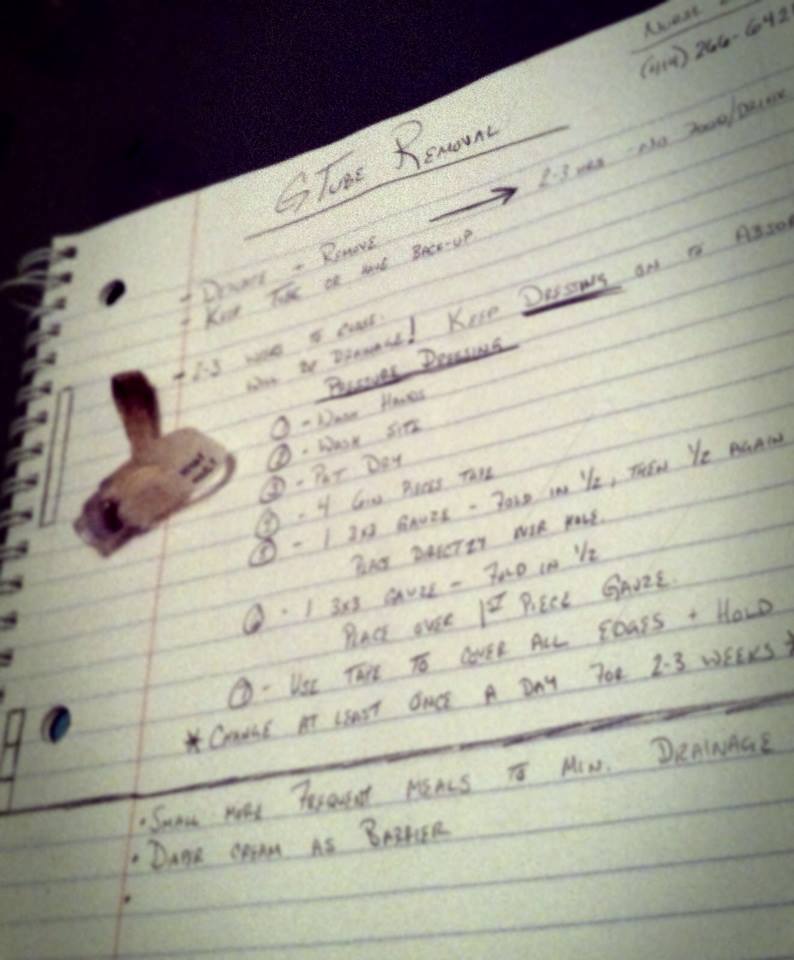 Nurse
(414) 266-642
G Tube Removal
- Deflate + Remove → 2-3 hrs no food/drink
- Keep tube or have back-up
- 2-3 weeks to close.
Will be drainage! Keep Dressing on to absor
Pressure Dressing
① - Wash Hands
② - Wash site
③ - Pat Dry
④ - 4 6in pieces tape
⑤ - 1 3x3 gauze - fold in 1/2, then 1/2 again
Place directly over hole.
⑥ - 1 3x3 gauze - fold in 1/2
Place over 1st piece gauze.
⑦ - Use tape to cover all edges + hold
* Change at least once a day for 2-3 weeks *
• Small more frequent meals to min. drainage
• Diaper cream as barrier
•